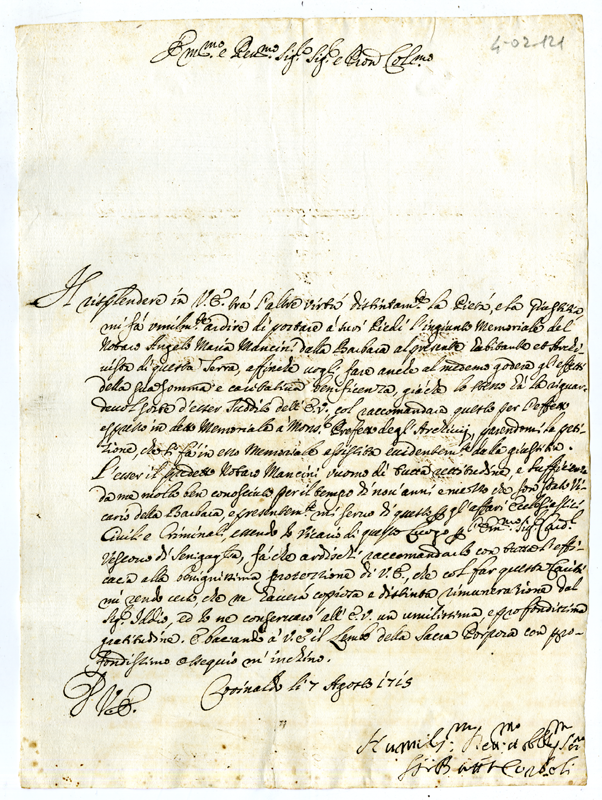 4-02-121
Em.mo e Rev.mo Sig.r Sig.r e Pron Col.mo
Il risplendere in V.E. trà l'altre virtù distintam.te la Pietà, e la Giustizia
mi fà umilm.te ardire di portare a suoi Piedi l'ingiunto Memoriale del
Notaro Angelo Maria Mancini dalla Barbara al presente habitante et Archi
vista di questa Terra, affinche vogli fare anche al medemo godere gl'effetti
della sua somma e caritativa beneficienza, giàche lo stesso hà la riguar
devol sorte d'esser suddito dell'E.V. col raccomandare questo per l'effetto
espresso in detto Memoriale à Mons.r Prefetto degl'Archivij, parendomi la peti
zione, che si fà in esso Memoriale assistita evidentem.te dalla giustitia.
L'esser il sudetto Notaro Mancini uomo di tutta rettitudine e sufficienza
da me molto ben conosciuto per il tempo di nove anni e mezzo che sono stato Vi
cario della Barbara, e presentem.te mi servo di questo gl'affari Ecclesiastici
Civili e Criminali, essendo io Vicario di questo luogo p l'Em.mo Sig.r Card.
Vescovo di Senigaglia, fà che ardischi raccomandarlo con tutta l'effi
cacia alla benignissima protezzione di V.E., che col far questa carità
mi rendo certo, che ne haverà copiosa e distinta rimunerazione dal
Sig.r Iddio, ed io ne conservarò all'E.V. un umilissima e profondissima
gratitudine. E baciando à V.E. il Lembo della Sacra Porpora con pro
fondissimo ossequio m'inchino.
D V.E. Corinaldo li 7 Agosto 1715
Humiliss.m Dev.mo Obb.m Ser.e
Gio Batt